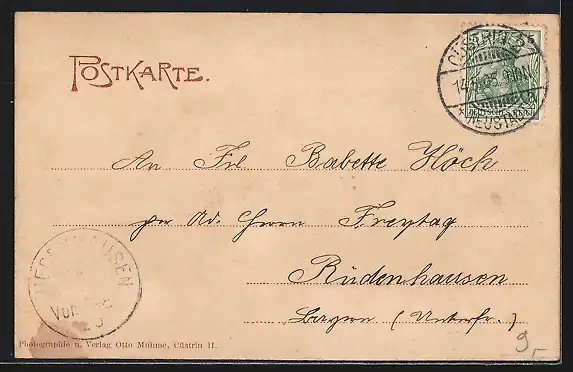 POSTKARTE.
CÜSTRIN 2
5
14.
10N.
* NEUSTADT
An Frl Babette Höch
per Ad. Herrn Freytag
Rüdenhausen
Bayern (Unterfr.)
HAUSEN
Vor
Photographie u. Verlag Otto Mühme, Cüstrin II.
9,-